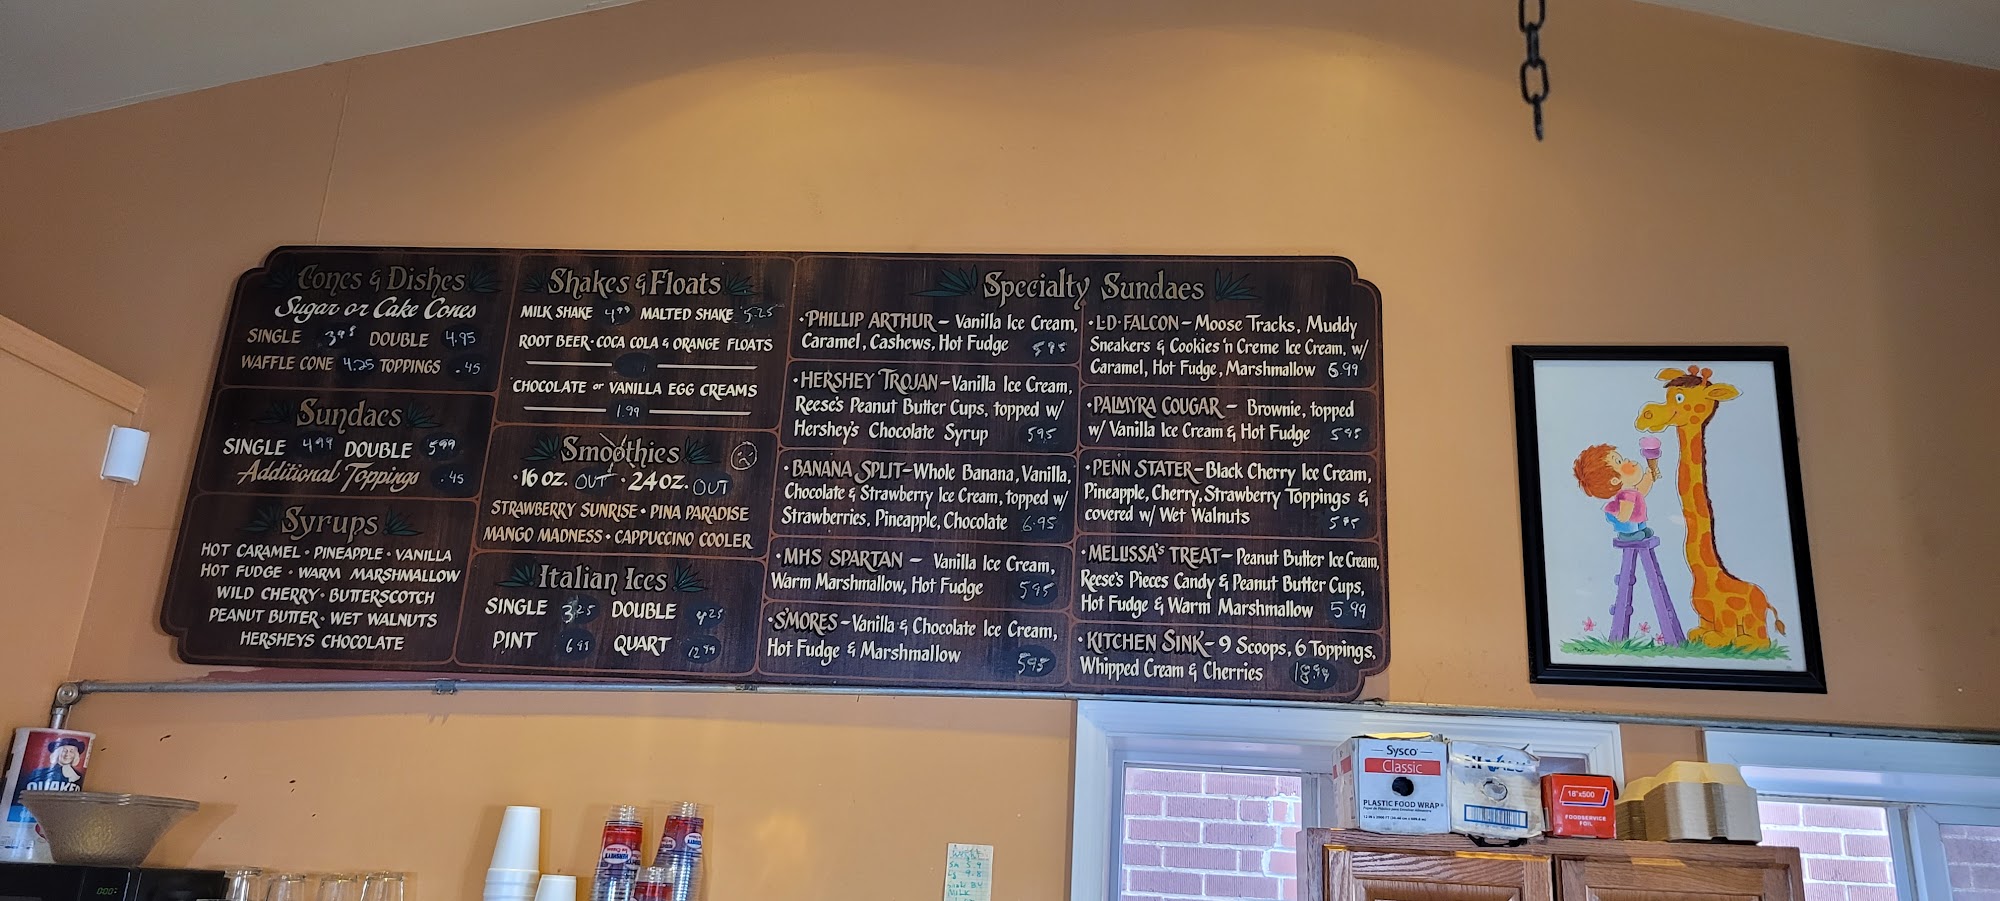 Cones & Dishes
Sugar or Cake Cones
SINGLE 3.95 DOUBLE 4.95
WAFFLE CONE 4.25 TOPPINGS .45
Sundaes
SINGLE 4.99 DOUBLE 5.99
Additional Toppings .45
Syrups
HOT CARAMEL • PINEAPPLE • VANILLA
HOT FUDGE • WARM MARSHMALLOW
WILD CHERRY • BUTTERSCOTCH
PEANUT BUTTER • WET WALNUTS
HERSHEYS CHOCOLATE
Shakes & Floats
MILK SHAKE 4.99 MALTED SHAKE 5.25
ROOT BEER • COCA COLA & ORANGE FLOATS
CHOCOLATE or VANILLA EGG CREAMS
1.99
Smoothies
• 16 OZ. OUT • 24 OZ. OUT
STRAWBERRY SUNRISE • PINA PARADISE
MANGO MADNESS • CAPPUCCINO COOLER
Italian Ices
SINGLE 3.25 DOUBLE 4.25
PINT 6.95 QUART 12.99
Specialty Sundaes
• PHILLIP ARTHUR – Vanilla Ice Cream,
Caramel, Cashews, Hot Fudge 5.95
• HERSHEY TROJAN – Vanilla Ice Cream,
Reese's Peanut Butter Cups, topped w/
Hershey's Chocolate Syrup 5.95
• BANANA SPLIT – Whole Banana, Vanilla,
Chocolate & Strawberry Ice Cream, topped w/
Strawberries, Pineapple, Chocolate 6.95
• MHS SPARTAN – Vanilla Ice Cream,
Warm Marshmallow, Hot Fudge 5.95
• S'MORES – Vanilla & Chocolate Ice Cream,
Hot Fudge & Marshmallow 5.95
• L•D•FALCON – Moose Tracks, Muddy
Sneakers & Cookies 'n Creme Ice Cream, w/
Caramel, Hot Fudge, Marshmallow 6.99
• PALMYRA COUGAR – Brownie, topped
w/ Vanilla Ice Cream & Hot Fudge 5.95
• PENN STATER – Black Cherry Ice Cream,
Pineapple, Cherry, Strawberry Toppings &
covered w/ Wet Walnuts 5.95
• MELISSA'S TREAT – Peanut Butter Ice Cream,
Reese's Pieces Candy & Peanut Butter Cups,
Hot Fudge & Warm Marshmallow 5.99
• KITCHEN SINK – 9 Scoops, 6 Toppings,
Whipped Cream & Cherries 18.94
QUAKER
Sysco
Classic
PLASTIC FOOD WRAP
18"x500
FOODSERVICE
FOIL